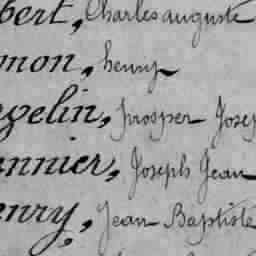 bert, Charles auguste
mon, henry
gelin, prosper Josep
nnier, Joseph Jean
enry, Jean Baptiste